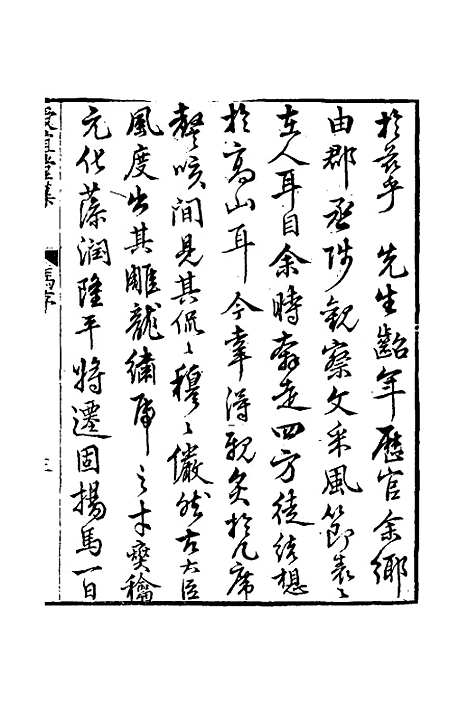 於茲乎　先生齠年歷官余鄉
由郡丞陟觀察文采風節表〻
在人耳目余時奔走四方徒結想
於高山耳今幸得親炙於几席
謦咳間見其侃〻穆〻儼然古大臣
風度出其雕龍繡虎之才奭䆃
元化藻潤隆平將遷固揚馬一日
馬序
三